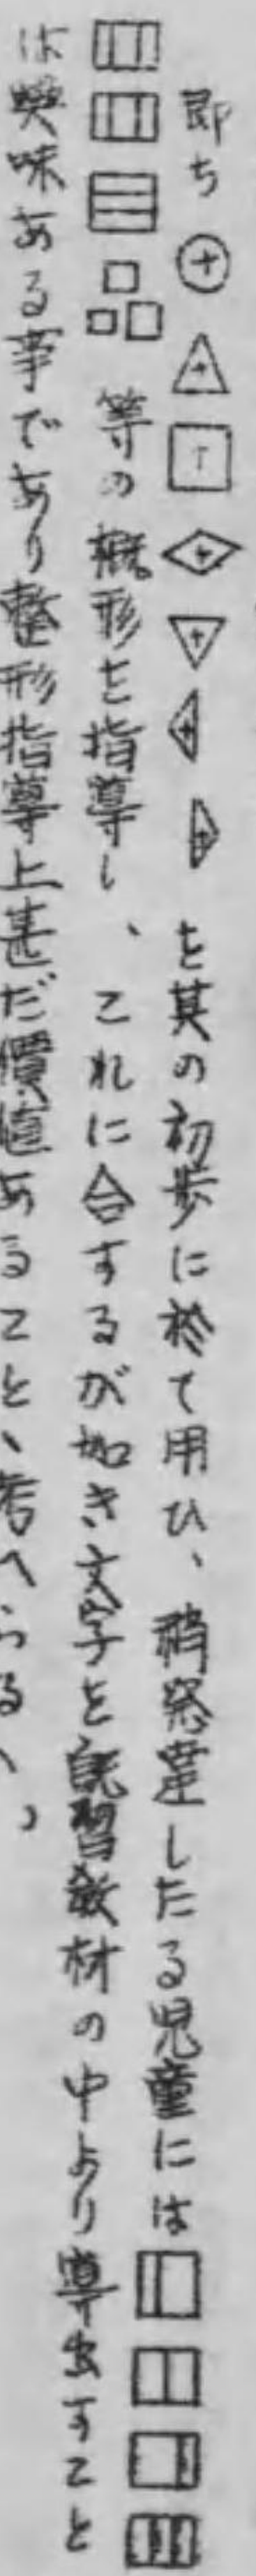 即ち を其の初歩に於て用ひ、稍発達したる児童には
等の概形を指導し、これに合するが如き文字を既習教材の中より導出すこと
は興味ある事であり整形指導上甚だ價値あることゝ考へらるゝ。